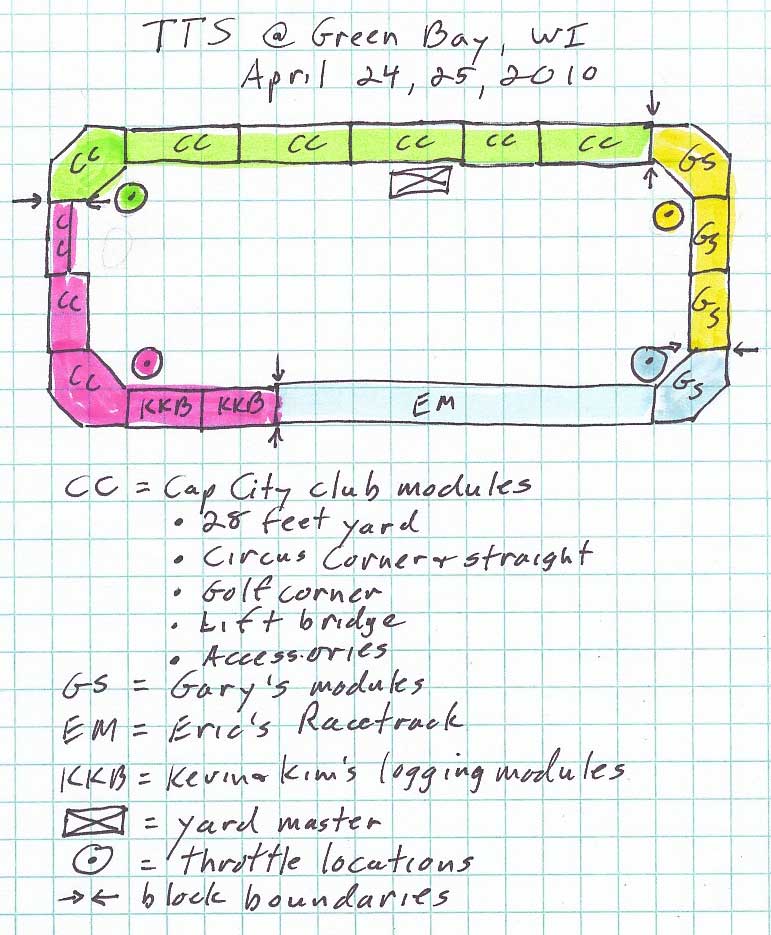 TTS @ Green Bay, WI
April 24, 25, 2010
CC CC CC CC CC CC GS
CC GS
CC GS
CC KKB KKB EM GS
CC = Cap City club modules
• 28 feet yard
• Circus Corner + straight
• Golf corner
• Lift bridge
• Accessories
GS = Gary's modules
EM = Eric's Racetrack
KKB = Kevin + Kim's logging modules
= yard master
= throttle locations
→← block boundaries